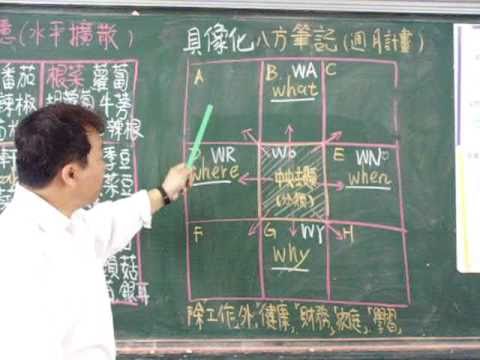 意(水平擴散)
具像化八方筆記(週、月計畫)
番茄 根菜 蘿蔔
辣椒 胡蘿蔔 牛蒡
辣根
季豆
菜豆
菇
銀耳
A B. WA C
what
WR Wo E WN
where 中央主題 when
F G WY H
why
除工作外,"健康","財務","家庭","學習",